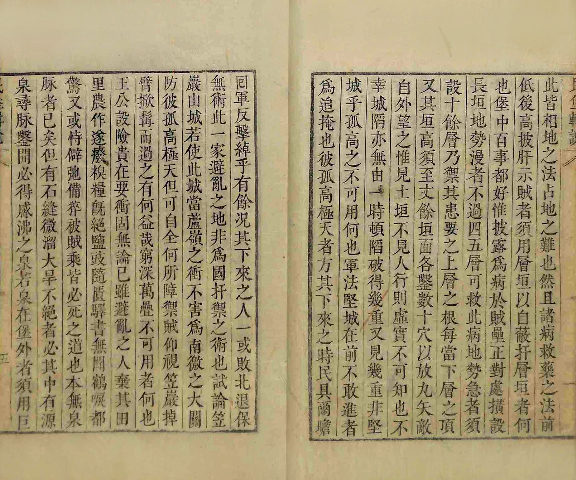 此皆相地之法占地之難也然且諸病救藥之法前
低後高披肝示賊者須用層垣以自蔽扞層垣者何
也堡中百事都好惟披露爲病於賊㝡正對處橫設
長垣地勢漫者不過四五層可救此病地勢急者須
設十餘層乃禦其患要之上層之根每當下層之頂
又其垣高須至丈餘垣面各鑿數十穴以放丸矢敵
自外望之惟見土垣不見人行則虛實不可知也不
幸城陷亦無由一時頓陷破得幾重又見幾重非堅
城乎孤高之不可用何也軍法堅城在前不敢進者
爲追掩也彼孤高極天者方其下來之時民具
回軍反擊綽乎有餘况其下來之人一或敗北退保
無術此一家避亂之地非爲國扞禦之術也試論笠
巖山城若使此城當蘆嶺之衝不害爲南徼之大關
防彼孤高極天但可自全何所障禦賊仰視笠巖掉
臂掀髯而過之有何益哉窮深萬疊不可用者何也
王公設險貴在要衝固無論已雖避亂之人棄其田
里農作遂癈糗糧旣絕鹽豉隨匱驛書無聞鶴唳都
驚又或恃僻弛備猝被賊乘皆必死之道也本無泉
脉者已矣但有石縫微溜大旱不絕者必其中有源
泉尋脉鑿開必得觱沸之泉若泉在堡外者須用巨
三